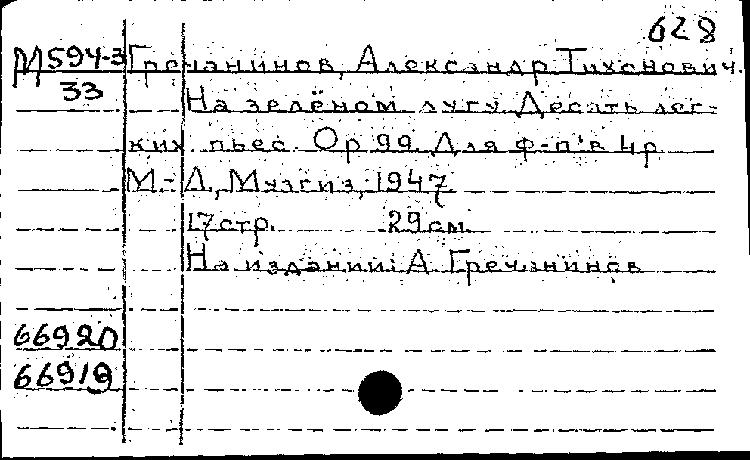 628
М594-3 Гречанинов, Александр Тихонович.
33 На зелёном лугу Десять лег-
ких пьес. Ор 99 Для ф-п в 4р
М.-Л., Музгиз, 1947
17 стр. 29 см.
На издании: А Гречанинов
66920
66919